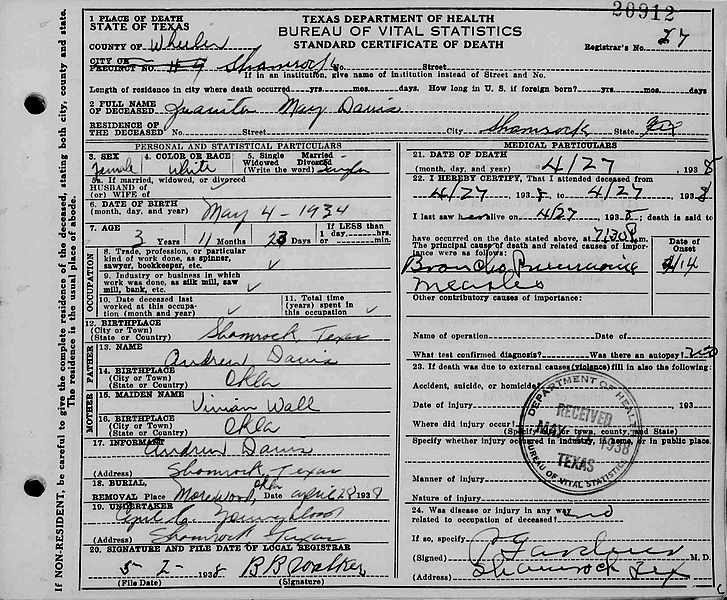 20912
1 PLACE OF DEATH
STATE OF TEXAS
TEXAS DEPARTMENT OF HEALTH
BUREAU OF VITAL STATISTICS
STANDARD CERTIFICATE OF DEATH
COUNTY OF Wheeler
Registrar's No. 27
CITY OR
PRECINCT NO. Shamrock No. Street
If in an institution, give name of institution instead of Street and No.
Length of residence in city where death occurred yrs. mos. days. How long in U. S. if foreign born? yrs. mos. days
2 FULL NAME
OF DECEASED Juanita May Davis
RESIDENCE OF
THE DECEASED No. Street City Shamrock State Tex
PERSONAL AND STATISTICAL PARTICULARS
3. SEX 4. COLOR OR RACE 5. Single Married
Widowed Divorced
(Write the word) Single
Female White
5a. If married, widowed, or divorced
HUSBAND of
(or) WIFE of
6. DATE OF BIRTH
(month, day, and year) May 4 - 1934
7. AGE If LESS than
1 day, hrs.
or min.
3 Years 11 Months 23 Days
OCCUPATION
8. Trade, profession, or particular
kind of work done, as spinner,
sawyer, bookkeeper, etc. ✓
9. Industry or business in which
work was done, as silk mill, saw
mill, bank, etc. ✓
10. Date deceased last
worked at this occupa-
tion (month and year) ✓
11. Total time
(years) spent in
this occupation ✓
12. BIRTHPLACE
(City or Town)
(State or County) Shamrock, Texas
FATHER
13. NAME
Andrew Davis
14. BIRTHPLACE
(City or Town)
(State or Country) Okla
MOTHER
15. MAIDEN NAME
Vivian Wall
16. BIRTHPLACE
(City or Town)
(State or Country) Okla
17. INFORMANT
Andrew Davis
(Address) Shamrock, Texas
18. BURIAL,
REMOVAL Place Okla Date April 28 1938
19. UNDERTAKER
(Address) Shamrock Texas
20. SIGNATURE AND FILE DATE OF LOCAL REGISTRAR
5-2- 1938 B B Walker
(File Date) (Signature)
MEDICAL PARTICULARS
21. DATE OF DEATH
(month, day, and year) 4/27 1938
22. I HEREBY CERTIFY, That I attended deceased from
4/27 1938 to 4/27 1938
I last saw her alive on 4/27 1938; death is said to
have occurred on the date stated above, at 7:30 m.
The principal cause of death and related causes of impor-
tance were as follows:
Date of
Onset
Broncho Pneumonia 4/14
Measles
Other contributory causes of importance:
Name of operation Date of
What test confirmed diagnosis? Was there an autopsy? no
23. If death was due to external causes (violence) fill in also the following:
Accident, suicide, or homicide
Date of injury 193
Where did injury occur?
(Specify city or town, county, and State)
Specify whether injury occurred in industry, in home, or in public place.
Manner of injury
Nature of injury
DEPARTMENT OF HEALTH
RECEIVED
MAY 1938
TEXAS
BUREAU OF VITAL STATISTICS
24. Was disease or injury in any way
related to occupation of deceased? no
If so, specify
(Signed) M. D.
(Address) Shamrock Tex
If NON-RESIDENT, be careful to give the complete residence of the deceased, stating both city, county and state.
The residence is the usual place of abode.